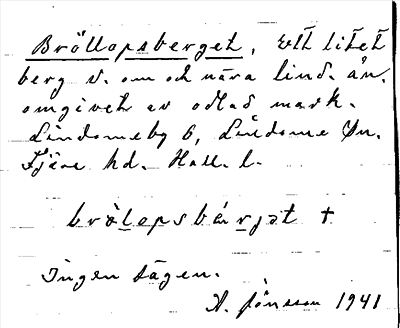 Bröllopsberget, Ett litet
berg v. om och nära lind. ån,
omgivet av odlad mark.
Lindomeby 6, Lindome sn.
Fjäre hd. Hall. l.
brölopsbärjət +
Ingen sägen.
A. Jönsson 1941